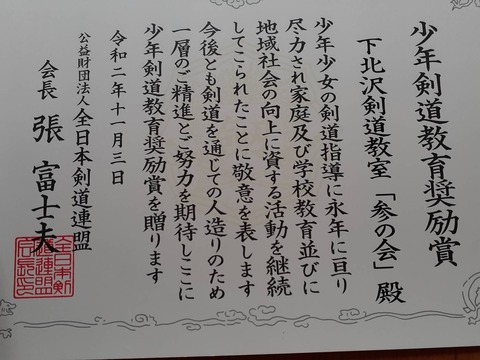 少年剣道教育奨励賞
下北沢剣道教室「参の会」殿
少年少女の剣道指導に永年に亘り
尽力され家庭及び学校教育並びに
地域社会の向上に資する活動を継続
してこられたことに敬意を表します
今後とも剣道を通じての人造りのため
一層のご精進とご努力を期待しここに
少年剣道教育奨励賞を贈ります
令和二年十一月三日
公益財団法人全日本剣道連盟
会長 張富士夫